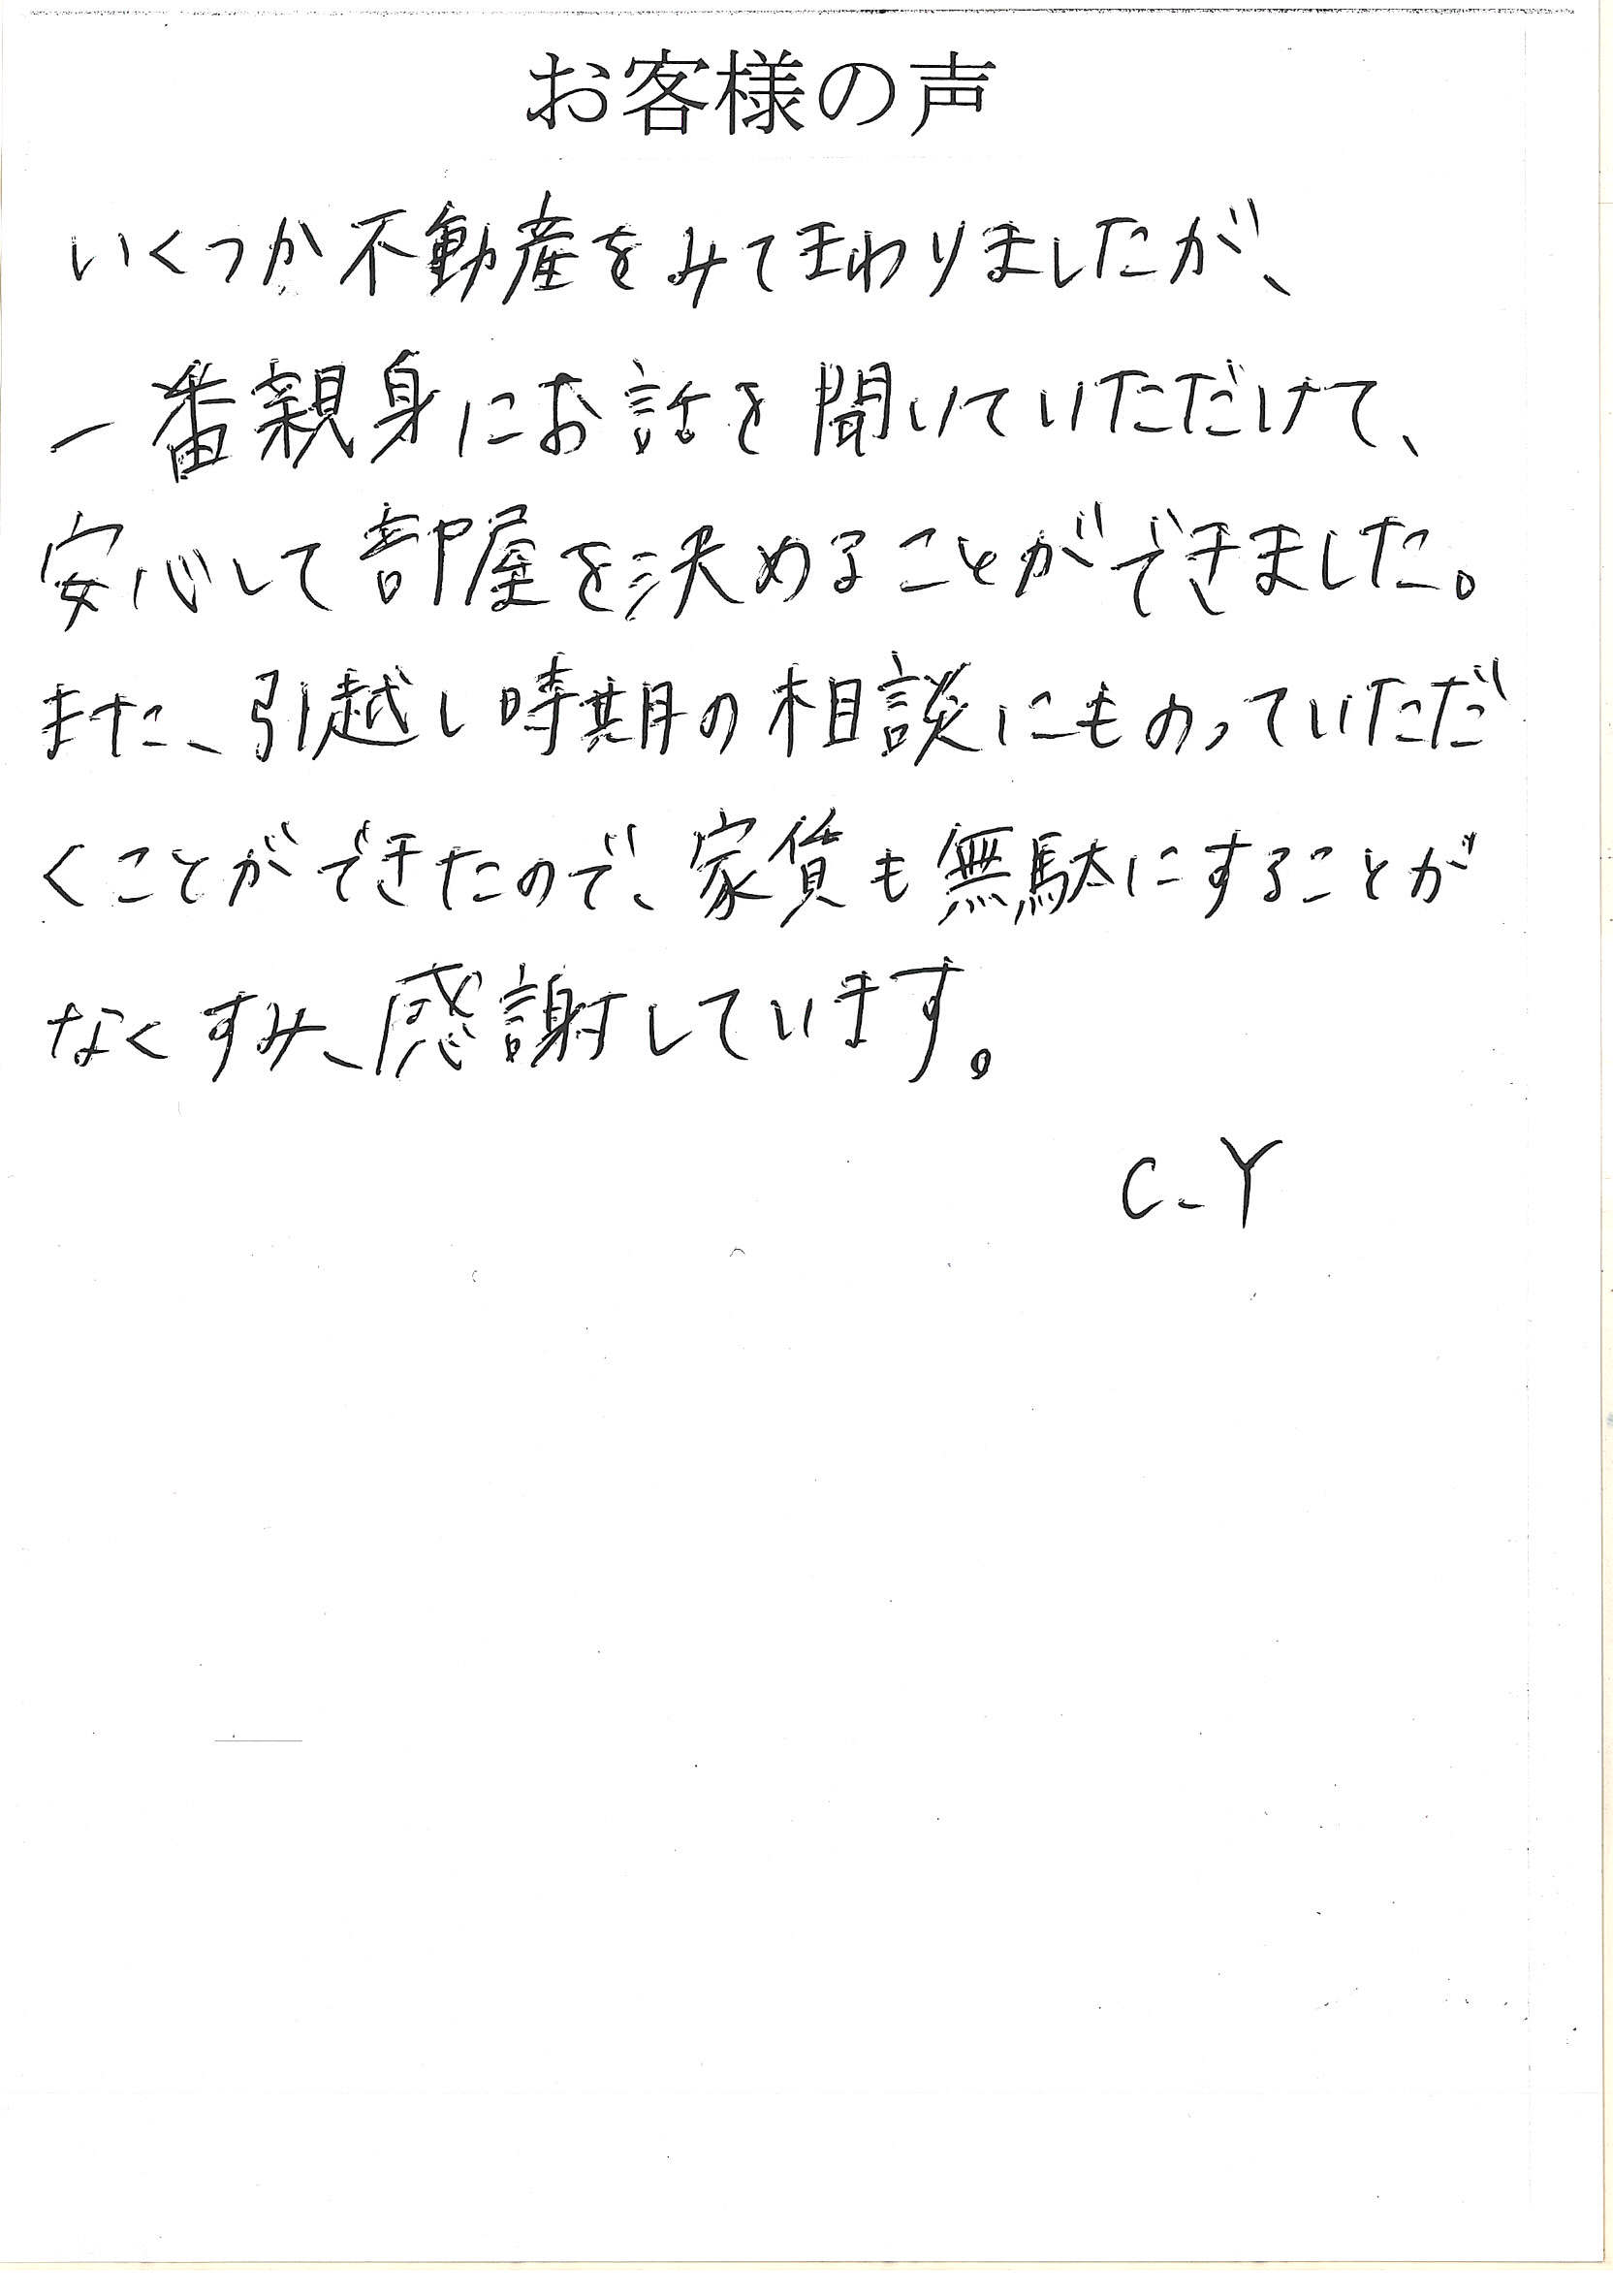 お客様の声
いくつか不動産をみてまわりましたが、
一番親身にお話を聞いていただけて、
安心して部屋を決めることができました。
また、引越し時期の相談にものっていただ
くことができたので、家賃も無駄にすることが
なくすみ、感謝しています。
C-Y